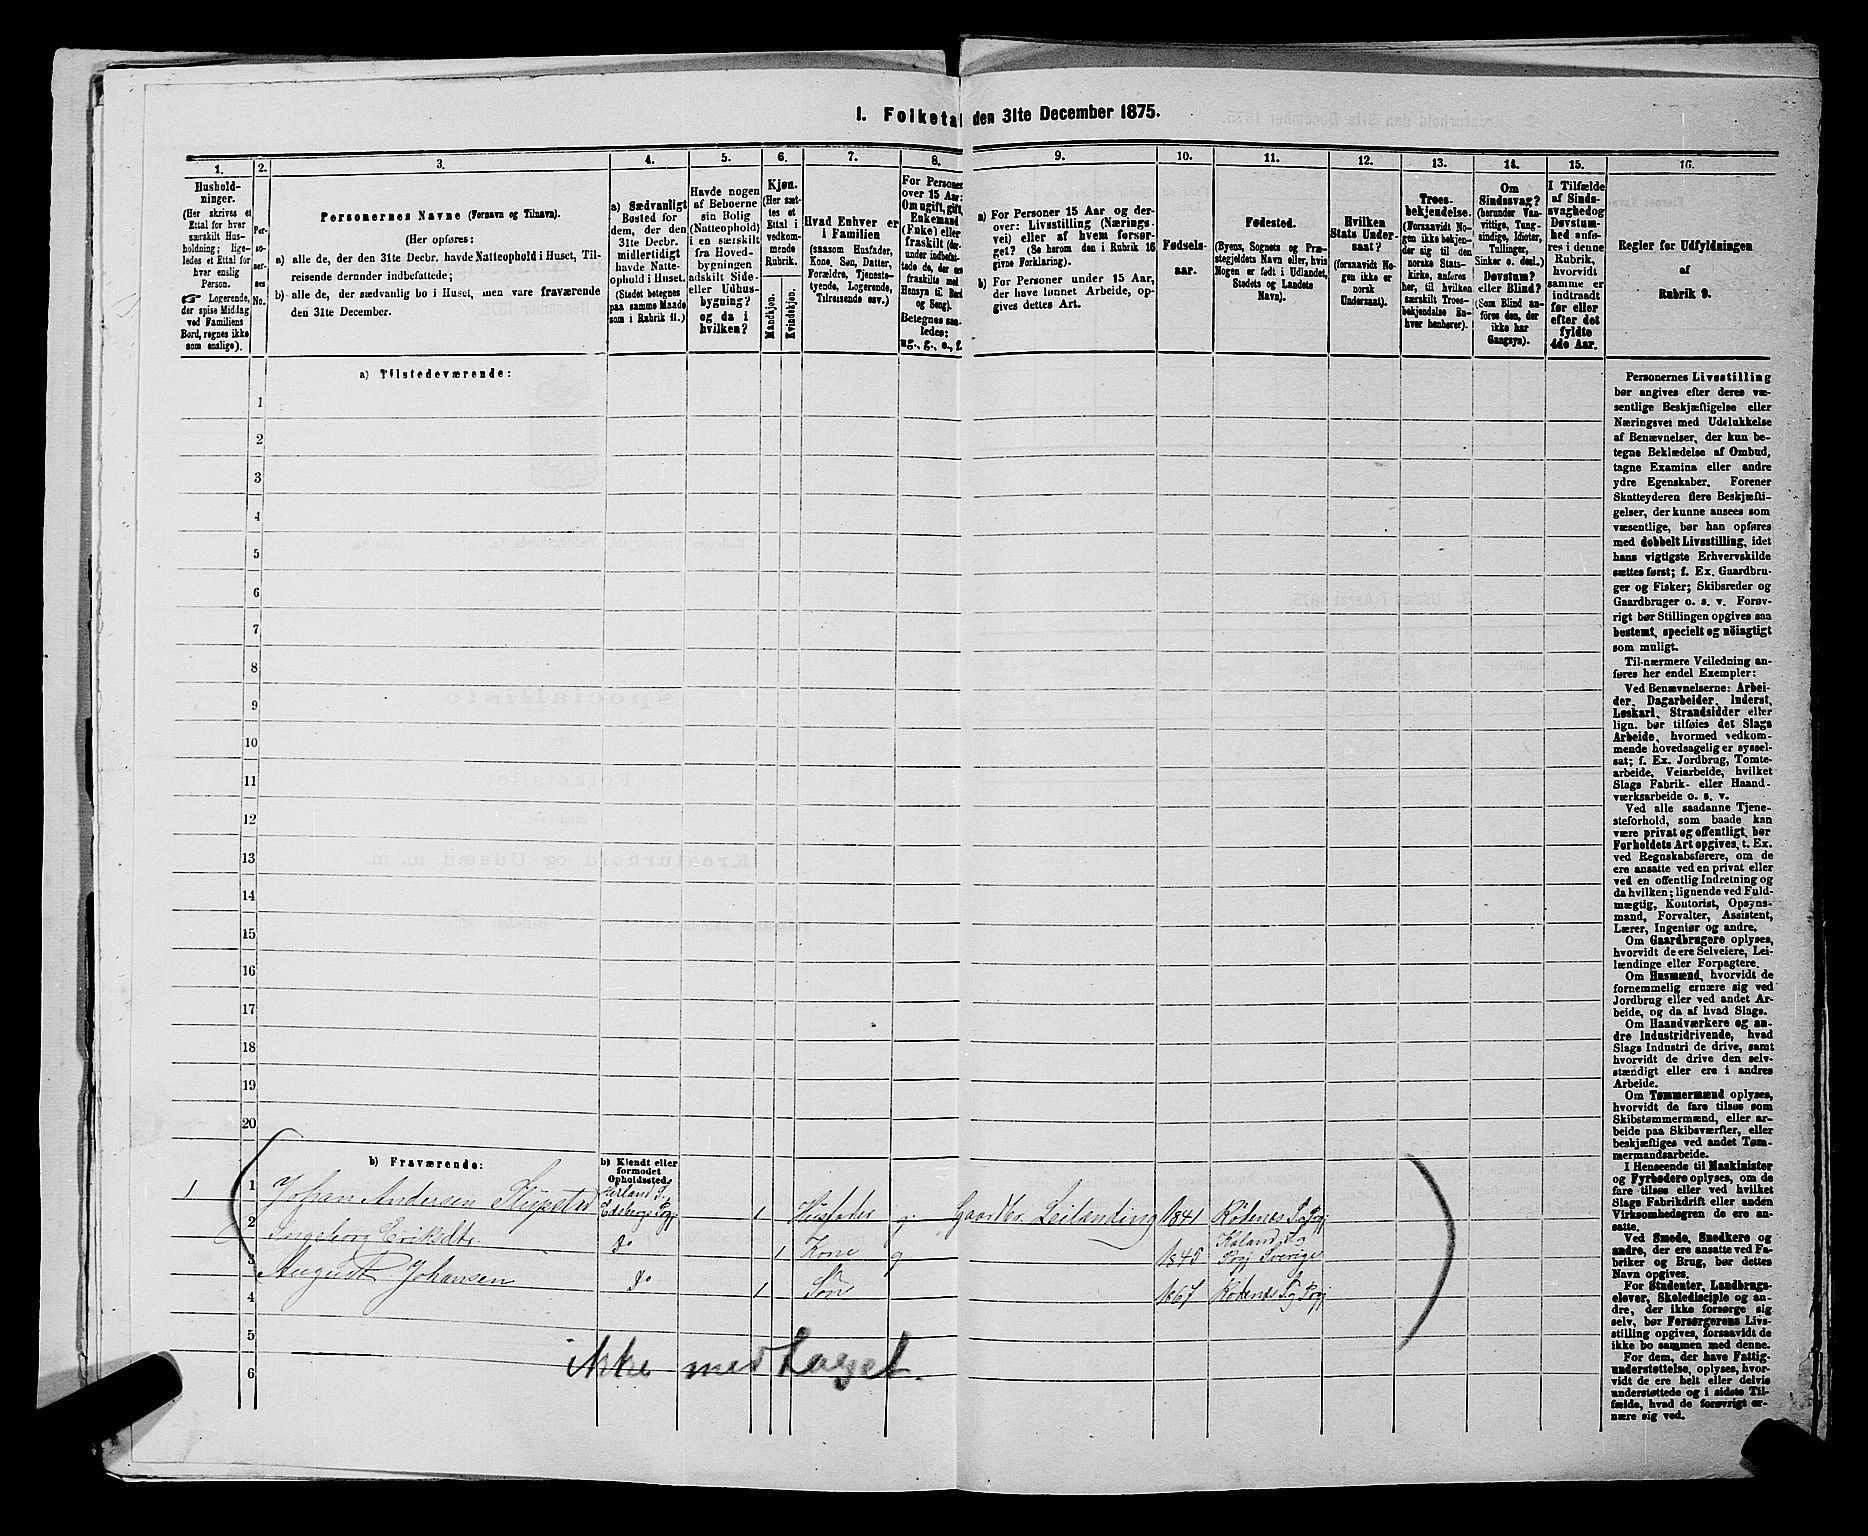 I. Folketal den 31te December 1875.
1.
2.
3.
4.
5.
6.
7.
8.
9.
10.
11.
12.
13.
14.
15.
16.
Hushold-
ninger.
(Her skrives et
Ettal for hver
særskilt Hus-
holdning; lige-
ledes et Ettal for
hver enslig
Person.
☛ Logerende,
der spise Middag
ved Familiens
Bord, regnes ikke
som enslige).
Per-
so-
ner-
nes
No.
Personernes Navne (Fornavn og Tilnavn).
(Her opføres:
a) alle de, der den 31te Decbr. havde Natteophold i Huset, Til-
reisende derunder indbefattede;
b) alle de, der sædvanlig bo i Huset, men vare fraværende
den 31te December.
a) Sædvanligt
Bosted for
dem, der den
31te Decbr.
midlertidigt
havde Natte-
ophold i Huset.
(Stedet betegnes
paa samme Maade
som i Rubrik 11.)
Havde nogen
af Beboerne
sin Bolig
(Natteophold)
i en særskilt
fra Hoved-
bygningen
adskilt Side-
eller Udhus-
bygning?
og da i
hvilken?
Kjøn.
(Her sæt-
tes et
Ettal i
vedkom-
mende
Rubrik.
Mandkjøn.
Kvindekjøn.
Hvad Enhver er
i Familien
(saasom Husfader,
Kone, Søn, Datter,
Forældre, Tjeneste-
tyende, Logerende,
Tilreisende osv.)
For Personer
over 15 Aar:
Om ugift, gift,
Enkemand
(Enke) eller
fraskilt (der-
under indbefat-
tede de, der ere
fraskilte med
Hensyn til Bord
og Seng).
Betegnes saa-
ledes:
ug., g., e., f.
a) For Personer 15 Aar og der-
over: Livsstilling (Nærings-
vei) eller af hvem forsør-
get? (Se herom den i Rubrik 16
givne Forklaring).
b) For Personer under 15 Aar,
der have lønnet Arbeide, op-
gives dettes Art.
Fødsels-
aar.
Fødested.
(Byens, Sognets og Præ-
stegjeldets Navn eller, hvis
Nogen er født i Udlandet,
Stedets og Landets
Navn).
Hvilken
Stats Under-
saat?
(forsaavidt No-
gen ikke er
norsk
Undersaat).
Troes-
bekjendelse.
(Forsaavidt No-
gen ikke bekjen-
der sig til den
norske Stats-
kirke, anføres
her, til hvilken
særskilt Troes-
bekjendelse En-
hver henhører).
Om
Sindssvag?
(herunder Van-
vittige, Tung-
sindige, Idioter,
Tullinger,
Sinker o. desl.)
Døvstum?
eller Blind?
(Som Blind an-
føres den, der
ikke har
Gangsyn).
I Tilfælde
af Sinds-
svaghed og
Døvstum-
hed anfø-
res i denne
Rubrik,
hvorvidt
samme er
indtraadt
før eller
efter det
fyldte
4de Aar.
Regler for Udfyldningen
af
Rubrik 9.
a) Tilstedeværende:
1
2
3
4
5
6
7
8
9
10
11
12
13
14
15
16
17
18
19
20
b) Fraværende:
b) Kjendt eller
formodet
Opholdssted.
1 1 Johan Andersen 1 Husfader g Gaardbr. Leilænding 1841 Rødenæs S. og Pgj.
2 Ingeborg Eriksdtr. Do 1 Kone g 1845 Pgj Sverige
3 August Johansen Do 1 Søn 1867 Rødenæs S. og Pgj.
4
5
6
ikke medtaget.
Personernes Livsstilling
bør angives efter deres væ-
sentlige Beskjæftigelse eller
Næringsvei med Udelukkelse
af Benævnelser, der kun be-
tegne Beklædelse af Ombud,
tagne Examina eller andre
ydre Egenskaber. Forener
Skatteyderen flere Beskjæfti-
gelser, der kunne ansees som
væsentlige, bør han opføres
med dobbelt Livsstilling, idet
hans vigtigste Erhvervskilde
sættes først; f. Ex. Gaardbru-
ger og Fisker; Skibsreder og
Gaardbruger o. s. v. Forøv-
rigt bør Stillingen opgives saa
bestemt, specielt og nöiagtigt
som muligt.
Til nærmere Veiledning an-
føres her endel Exempler:
Ved Benævnelserne: Arbei-
der, Dagarbeider, Inderst,
Løskarl, Strandsidder eller
lign. bør tilføies det Slags
Arbeide, hvormed vedkom-
mende hovedsagelig er syssel-
sat; f. Ex. Jordbrug, Tomte-
arbeide, Veiarbeide, hvilket
Slags Fabrik- eller Haand-
værksarbeide o. s. v.
Ved alle saadanne Tjene-
steforhold, som baade kan
være privat og offentligt, bør
Forholdets Art opgives, t. Ex.
ved Regnskabsførere, om de
ere ansatte ved en privat eller
ved en offentlig Indretning og
da hvilken; lignende ved Fuld-
mægtig, Kontorist, Opsyns-
mand, Forvalter, Assistent,
Lærer, Ingeniør og andre.
Om Gaardbrugere oplyses,
hvorvidt de ere Selveiere, Lei-
lændinge eller Forpagtere.
Om Husmænd, hvorvidt de
fornemmelig ernære sig ved
Jordbrug eller ved andet Ar-
beide, og da af hvad Slags.
Om Haandværkere og an-
dre Industridrivende, hvad
Slags Industri de drive, samt
hvorvidt de drive den selv-
stændigt eller ere i andres
Arbeide.
Om Tømmermænd oplyses,
hvorvidt de fare tilsøs som
Skibstømmermænd, eller ar-
beide paa Skibsværfter, eller
beskjæftiges ved andet Tøm-
mermandsarbeide.
I Henseende til Maskinister
og Fyrbødere oplyses, om de
fare tilsøs eller ved hvilket
Slags Fabrikdrift eller anden
Virksomhedsgren de ere an-
satte.
Ved Smede, Snedkere og
andre, der ere ansatte ved Fa-
briker og Brug, bør dettes
Navn opgives.
For Studenter, Landbrugs-
elever, Skoledisciple og an-
dre, der ikke forsørge sig
selv, bør Forsørgerens Livs-
stilling opgives, forsaavidt de
ikke bo sammen med denne.
For dem, der have Fattig-
understøttelse, oplyses, hvor-
vidt de ere helt eller delvis
understøttede og i sidste Til-
fælde, hvad de forøvrigt er-
nære sig ved.